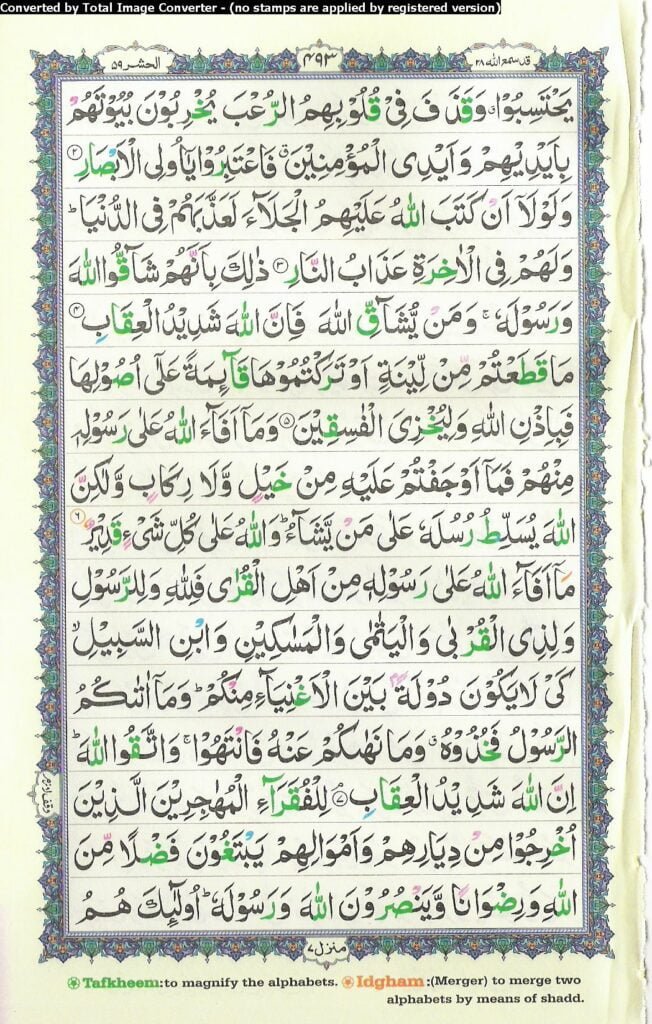 Converted by Total Image Converter - (no stamps are applied by registered version)
الحشر ٥٩
٤٩٣
قد سمع الله ٢٨
يَحْتَسِبُوْا ۗ وَقَذَفَ فِيْ قُلُوْبِهِمُ الرُّعْبَ يُخْرِبُوْنَ بُيُوْتَهُمْ
بِاَيْدِيْهِمْ وَاَيْدِي الْمُؤْمِنِيْنَ ۗ فَاعْتَبِرُوْا يٰٓاُولِي الْاَبْصَارِ ۝٢
وَلَوْلَآ اَنْ كَتَبَ اللّٰهُ عَلَيْهِمُ الْجَلَآءَ لَعَذَّبَهُمْ فِي الدُّنْيَا ؕ
وَلَهُمْ فِي الْاٰخِرَةِ عَذَابُ النَّارِ ۝٣ ذٰلِكَ بِاَنَّهُمْ شَآقُّوا اللّٰهَ
وَرَسُوْلَهٗ ۚ وَمَنْ يُّشَآقِّ اللّٰهَ فَاِنَّ اللّٰهَ شَدِيْدُ الْعِقَابِ ۝٤
مَا قَطَعْتُمْ مِّنْ لِّيْنَةٍ اَوْ تَرَكْتُمُوْهَا قَآئِمَةً عَلٰٓى اُصُوْلِهَا
فَبِاِذْنِ اللّٰهِ وَلِيُخْزِيَ الْفٰسِقِيْنَ ۝٥ وَمَآ اَفَآءَ اللّٰهُ عَلٰى رَسُوْلِهٖ
مِنْهُمْ فَمَآ اَوْجَفْتُمْ عَلَيْهِ مِنْ خَيْلٍ وَّلَا رِكَابٍ وَّلٰكِنَّ
اللّٰهَ يُسَلِّطُ رُسُلَهٗ عَلٰى مَنْ يَّشَآءُ ؕ وَاللّٰهُ عَلٰى كُلِّ شَيْءٍ قَدِيْرٌ ۝٦
مَآ اَفَآءَ اللّٰهُ عَلٰى رَسُوْلِهٖ مِنْ اَهْلِ الْقُرٰى فَلِلّٰهِ وَلِلرَّسُوْلِ
وَلِذِي الْقُرْبٰى وَالْيَتٰمٰى وَالْمَسٰكِيْنِ وَابْنِ السَّبِيْلِ ۙ
كَيْ لَا يَكُوْنَ دُوْلَةًۢ بَيْنَ الْاَغْنِيَآءِ مِنْكُمْ ؕ وَمَآ اٰتٰىكُمُ
الرَّسُوْلُ فَخُذُوْهُ ۗ وَمَا نَهٰىكُمْ عَنْهُ فَانْتَهُوْا ۚ وَاتَّقُوا اللّٰهَ ؕ
اِنَّ اللّٰهَ شَدِيْدُ الْعِقَابِ ۝٧ لِلْفُقَرَآءِ الْمُهٰجِرِيْنَ الَّذِيْنَ
اُخْرِجُوْا مِنْ دِيَارِهِمْ وَاَمْوَالِهِمْ يَبْتَغُوْنَ فَضْلًا مِّنَ
اللّٰهِ وَرِضْوَانًا وَّيَنْصُرُوْنَ اللّٰهَ وَرَسُوْلَهٗ ؕ اُولٰٓئِكَ هُمُ
منزل ٧
Tafkheem:to magnify the alphabets. Idgham:(Merger) to merge two
alphabets by means of shadd.